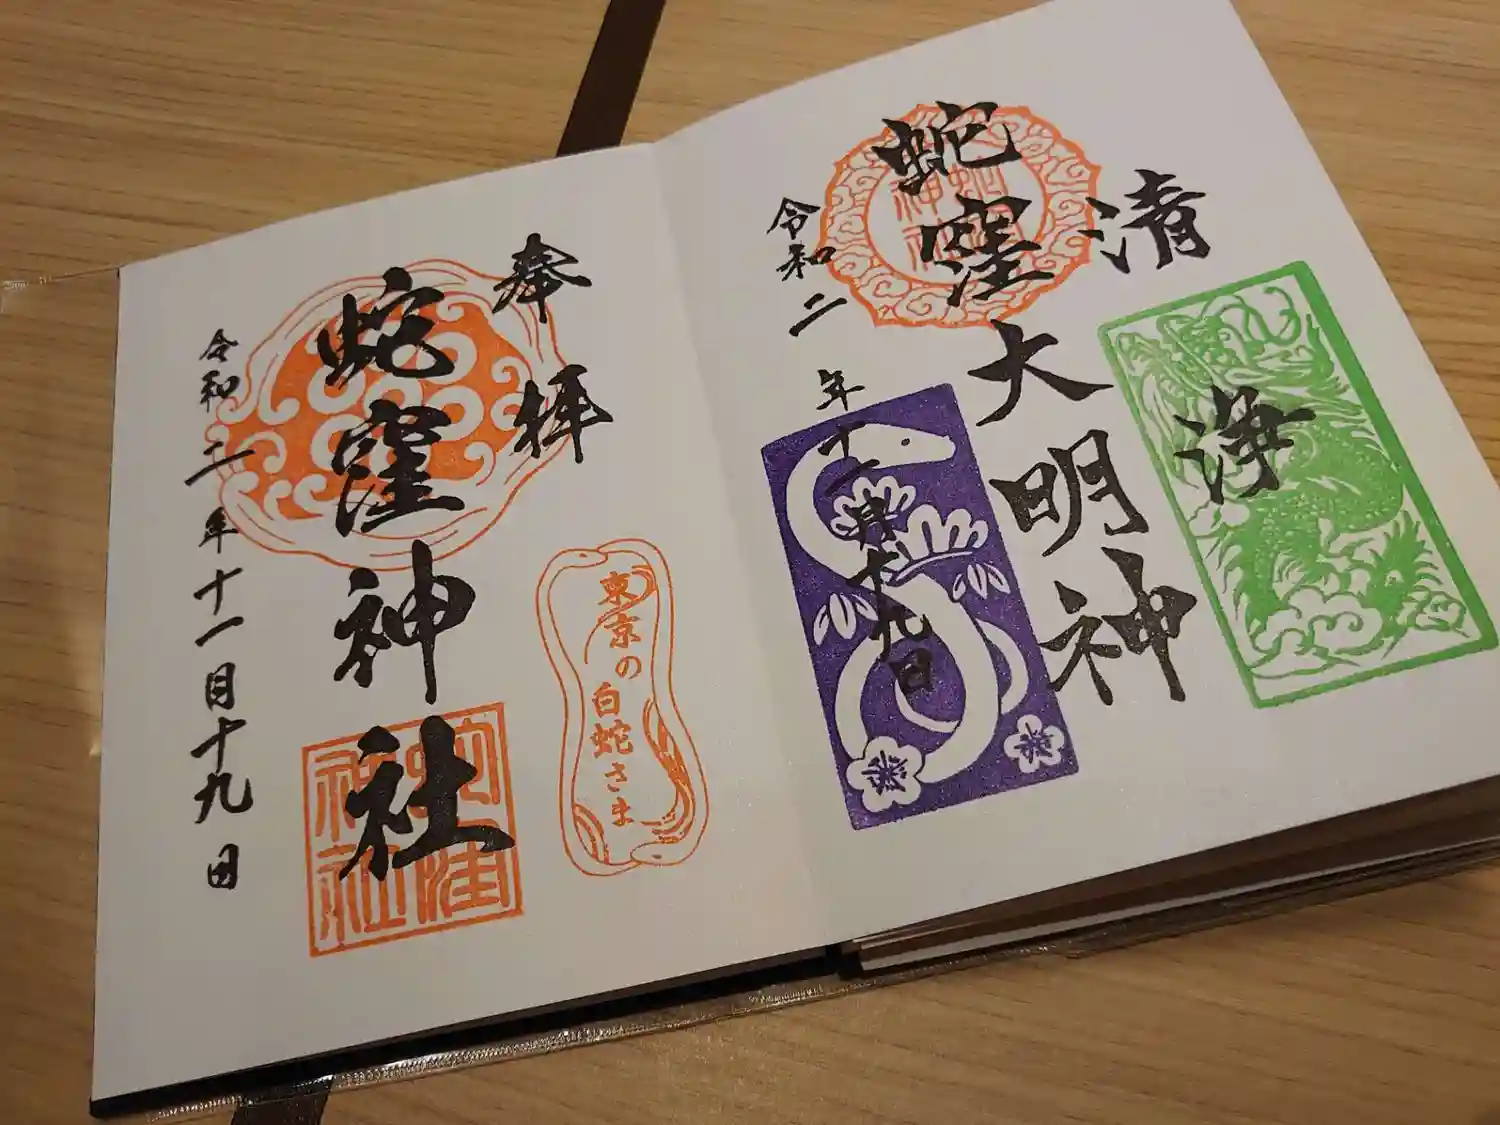 清
浄
蛇窪大明神
令和二年十一月十九日
蛇窪神社
奉拝
東京の白蛇さま
蛇窪神社
令和二年十一月十九日
蛇窪神社